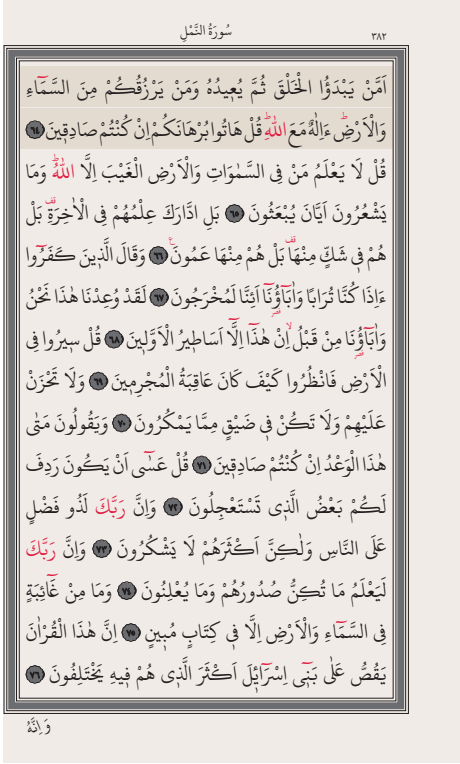 سُورَةُ النَّمْلِ ٣٨٢
اَمَّنْ يَبْدَؤُا الْخَلْقَ ثُمَّ يُعٖيدُهُ وَمَنْ يَرْزُقُكُمْ مِنَ السَّمَٓاءِ
وَالْاَرْضِؕ ءَاِلٰهٌ مَعَ اللّٰهِؕ قُلْ هَاتُوا بُرْهَانَكُمْ اِنْ كُنْتُمْ صَادِقٖينَ ٦٤
قُلْ لَا يَعْلَمُ مَنْ فِى السَّمٰوَاتِ وَالْاَرْضِ الْغَيْبَ اِلَّا اللّٰهُؕ وَمَا
يَشْعُرُونَ اَيَّانَ يُبْعَثُونَ ٦٥ بَلِ ادَّارَكَ عِلْمُهُمْ فِى الْاٰخِرَةِࣞ بَلْ
هُمْ فٖى شَكٍّ مِنْهَاࣞ بَلْ هُمْ مِنْهَا عَمُونَ ٦٦ وَقَالَ الَّذٖينَ كَفَرُٓوا
ءَاِذَا كُنَّا تُرَابًا وَاٰبَٓاؤُ۬نَٓا اَئِنَّا لَمُخْرَجُونَ ٦٧ لَقَدْ وُعِدْنَا هٰذَا نَحْنُ
وَاٰبَٓاؤُ۬نَا مِنْ قَبْلُۙ اِنْ هٰذَٓا اِلَّٓا اَسَاطٖيرُ الْاَوَّلٖينَ ٦٨ قُلْ سٖيرُوا فِى
الْاَرْضِ فَانْظُرُوا كَيْفَ كَانَ عَاقِبَةُ الْمُجْرِمٖينَ ٦٩ وَلَا تَحْزَنْ
عَلَيْهِمْ وَلَا تَكُنْ فٖى ضَيْقٍ مِمَّا يَمْكُرُونَ ٧٠ وَيَقُولُونَ مَتٰى
هٰذَا الْوَعْدُ اِنْ كُنْتُمْ صَادِقٖينَ ٧١ قُلْ عَسٰٓى اَنْ يَكُونَ رَدِفَ
لَكُمْ بَعْضُ الَّذٖى تَسْتَعْجِلُونَ ٧٢ وَاِنَّ رَبَّكَ لَذُو فَضْلٍ
عَلَى النَّاسِ وَلٰكِنَّ اَكْثَرَهُمْ لَا يَشْكُرُونَ ٧٣ وَاِنَّ رَبَّكَ
لَيَعْلَمُ مَا تُكِنُّ صُدُورُهُمْ وَمَا يُعْلِنُونَ ٧٤ وَمَا مِنْ غَٓائِبَةٍ
فِى السَّمَٓاءِ وَالْاَرْضِ اِلَّا فٖى كِتَابٍ مُبٖينٍ ٧٥ اِنَّ هٰذَا الْقُرْاٰنَ
يَقُصُّ عَلٰى بَنٖٓى اِسْرَٓائٖلَ اَكْثَرَ الَّذٖى هُمْ فٖيهِ يَخْتَلِفُونَ ٧٦
وَاِنَّهُ